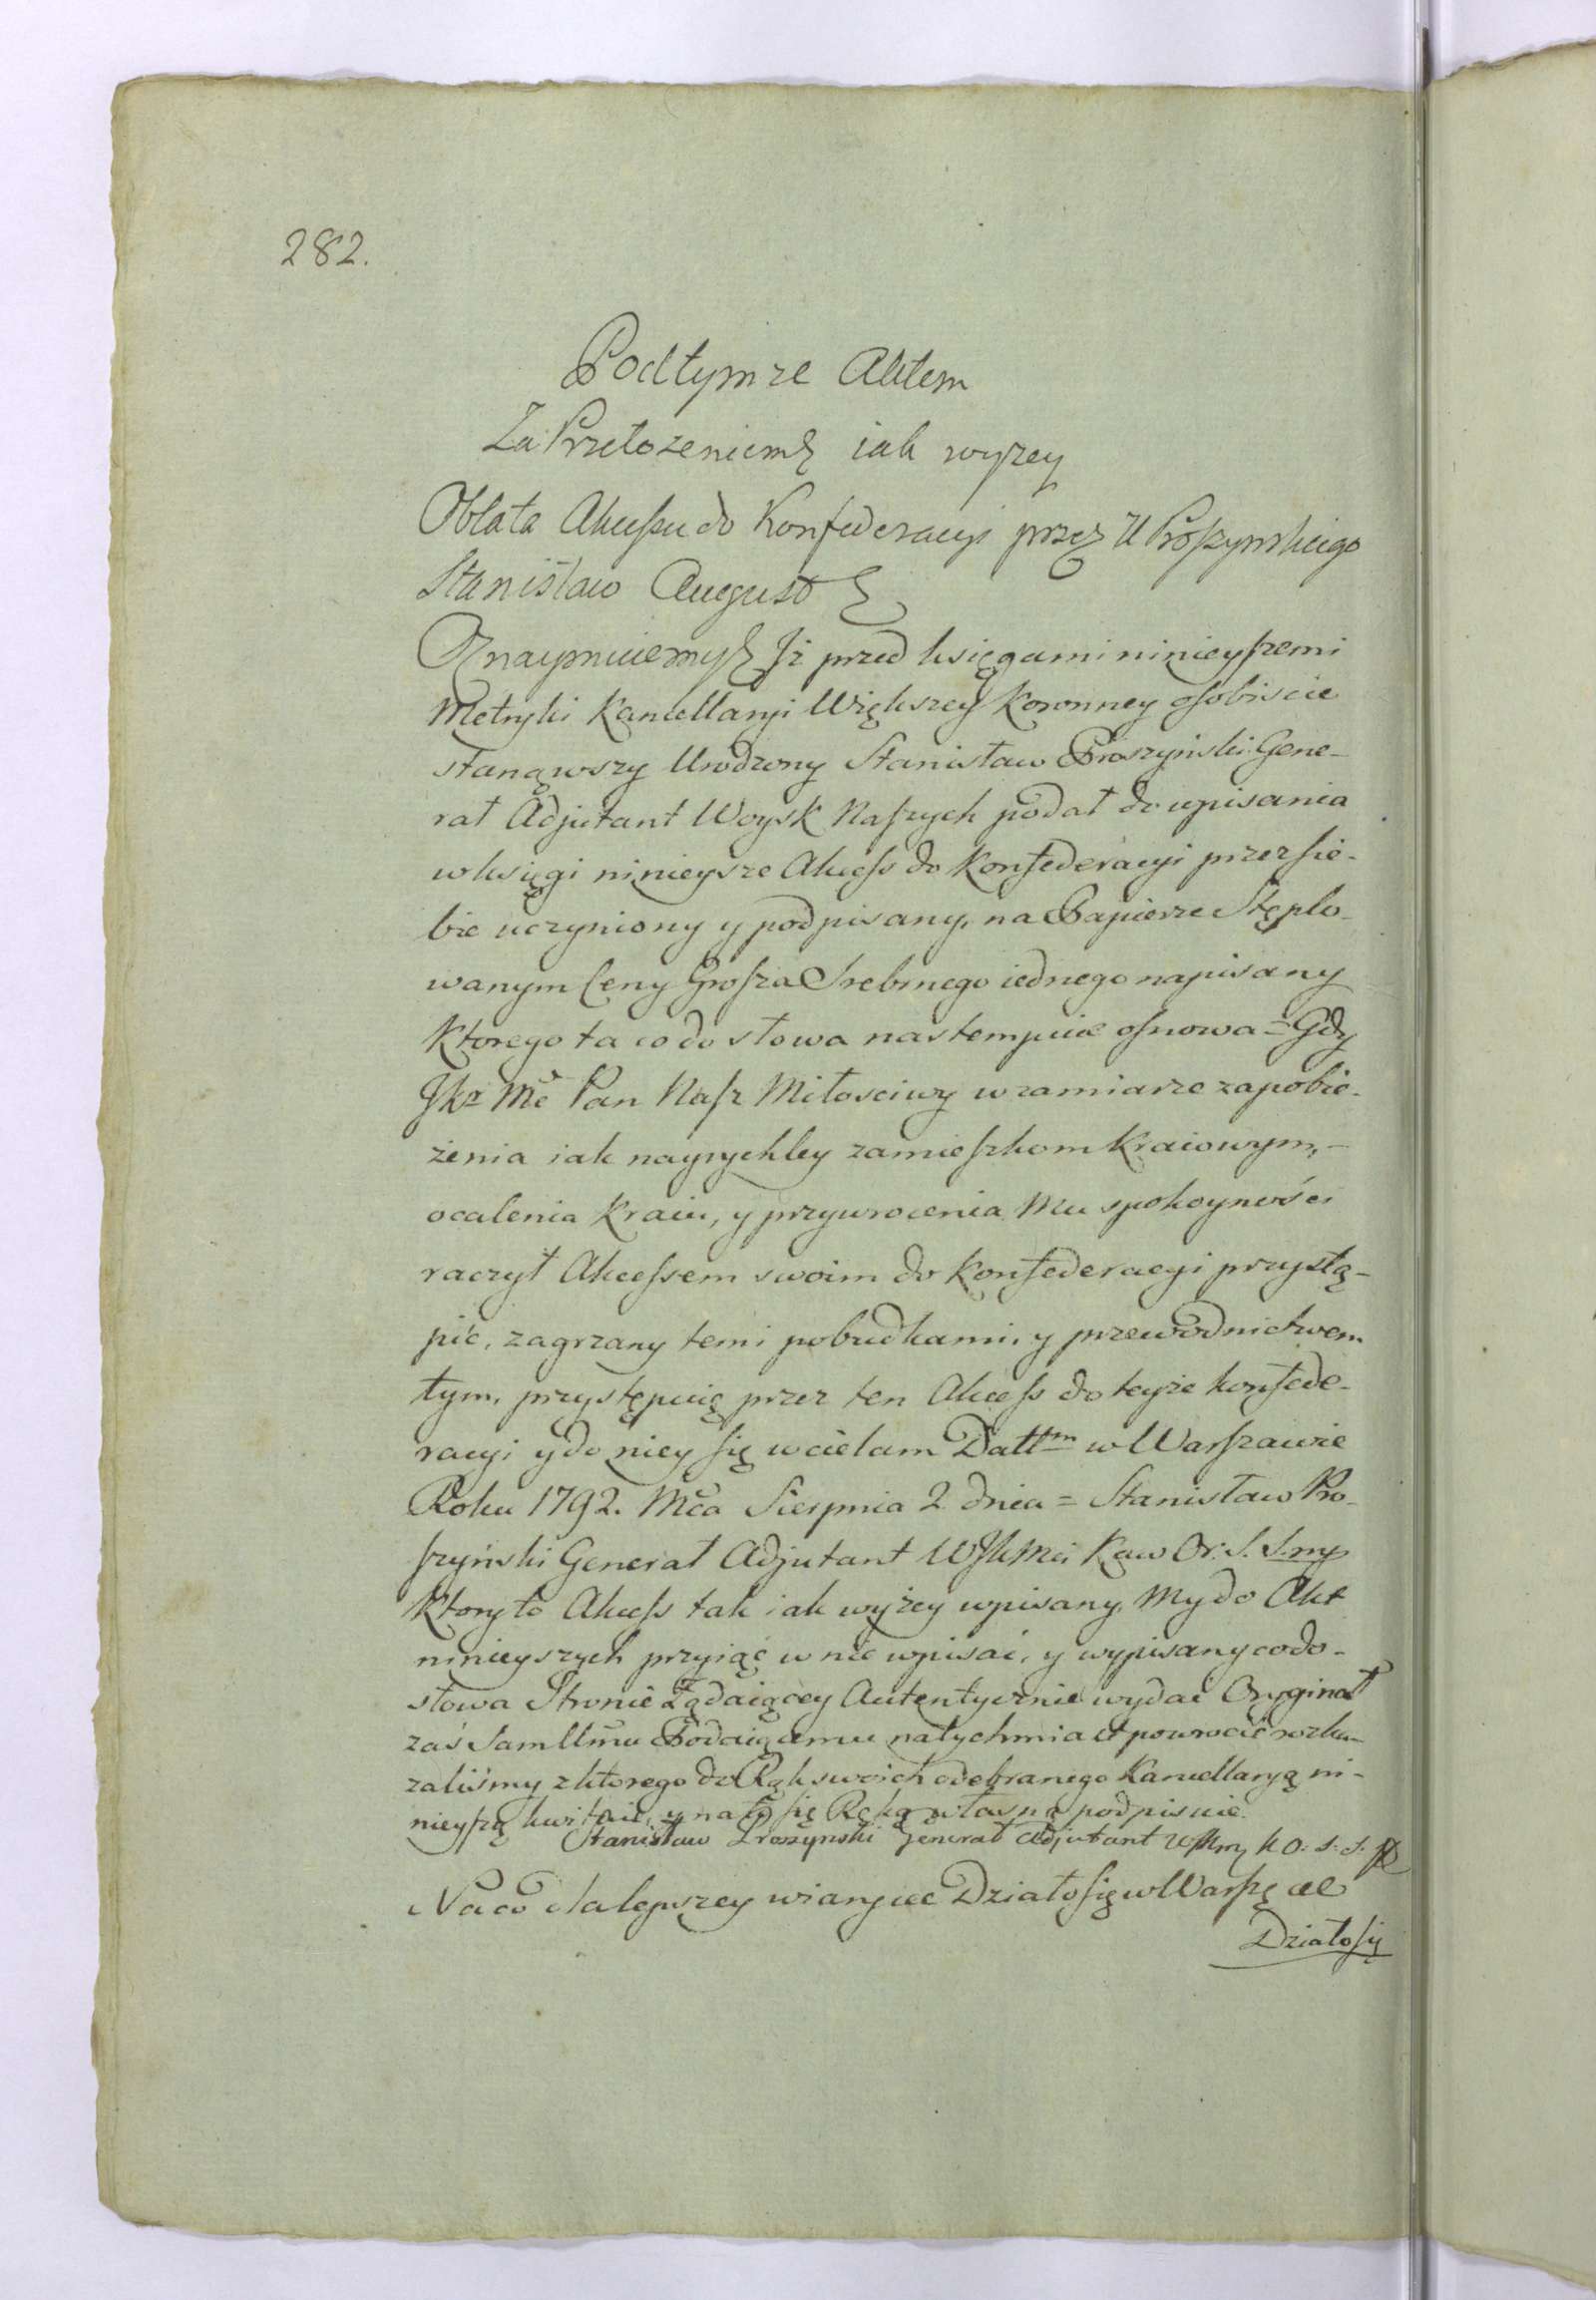 282.
Podtymze Aktem
Za Przełozeniem iak wyzey
Oblata Akcessu do Konfederacyi przez U Proszynskiego
Stanisław August
Oznaymuiemy Iż przed księgami ninieyszemi
Metryki Kancellaryi Większey Koronney osobiscie
stanąwszy Urodzony Stanisław Proszyński Gene-
rał Adjutant Woysk Naszych podał do wpisania
w księgi ninieysze Akcess do Konfederacyi przez sie-
bie uczyniony y podpisany, na Papierze Stęplo-
wanym Ceny Grosza Srebrnego iednego napisany
Ktorego ta co do słowa nastempuie osnowa = Gdy
JKr Mć Pan Nasz Miłosciwy w zamiarze zapobie-
żenia iak nayrychley zamieszkom Kraiowym, -
ocalenia Kraiu, y przywrocenia Mu spokoyności
raczył Akcessem swoim do Konfederacyi przystą-
pić, zagrzany temi pobudkami, y przewodnictwem
tym, przystępuię przez ten Akcess do teyże konfede-
racyi y do niey się wcielam Dattm w Warszawie
Roku 1792. Mca Sierpnia 2 dnia = Stanisław Pro-
szyński Generał Adjutant WJKMci Kaw Or. S. S. mp
Ktory to Akcess tak iak wyżey wpisany, My do Akt
ninieyszych przyiąć w nie wpisać, y wypisany co do-
słowa Stronie Żądaiącey Autentycznie wydać Oryginał
zaś Samemu Podaiącemu natychmiast powrocić rozka-
zaliśmy z ktorego do Rąk swoich odebranego Kancellaryą ni-
nieyszą kwituie, y na to się Ręką własną podpisuie.
Stanisław Proszynski Generał Adjutant WJKmy K O: S: S:
Na co dla lepszey wiary ec Działo się w Warsz ec
Działo się